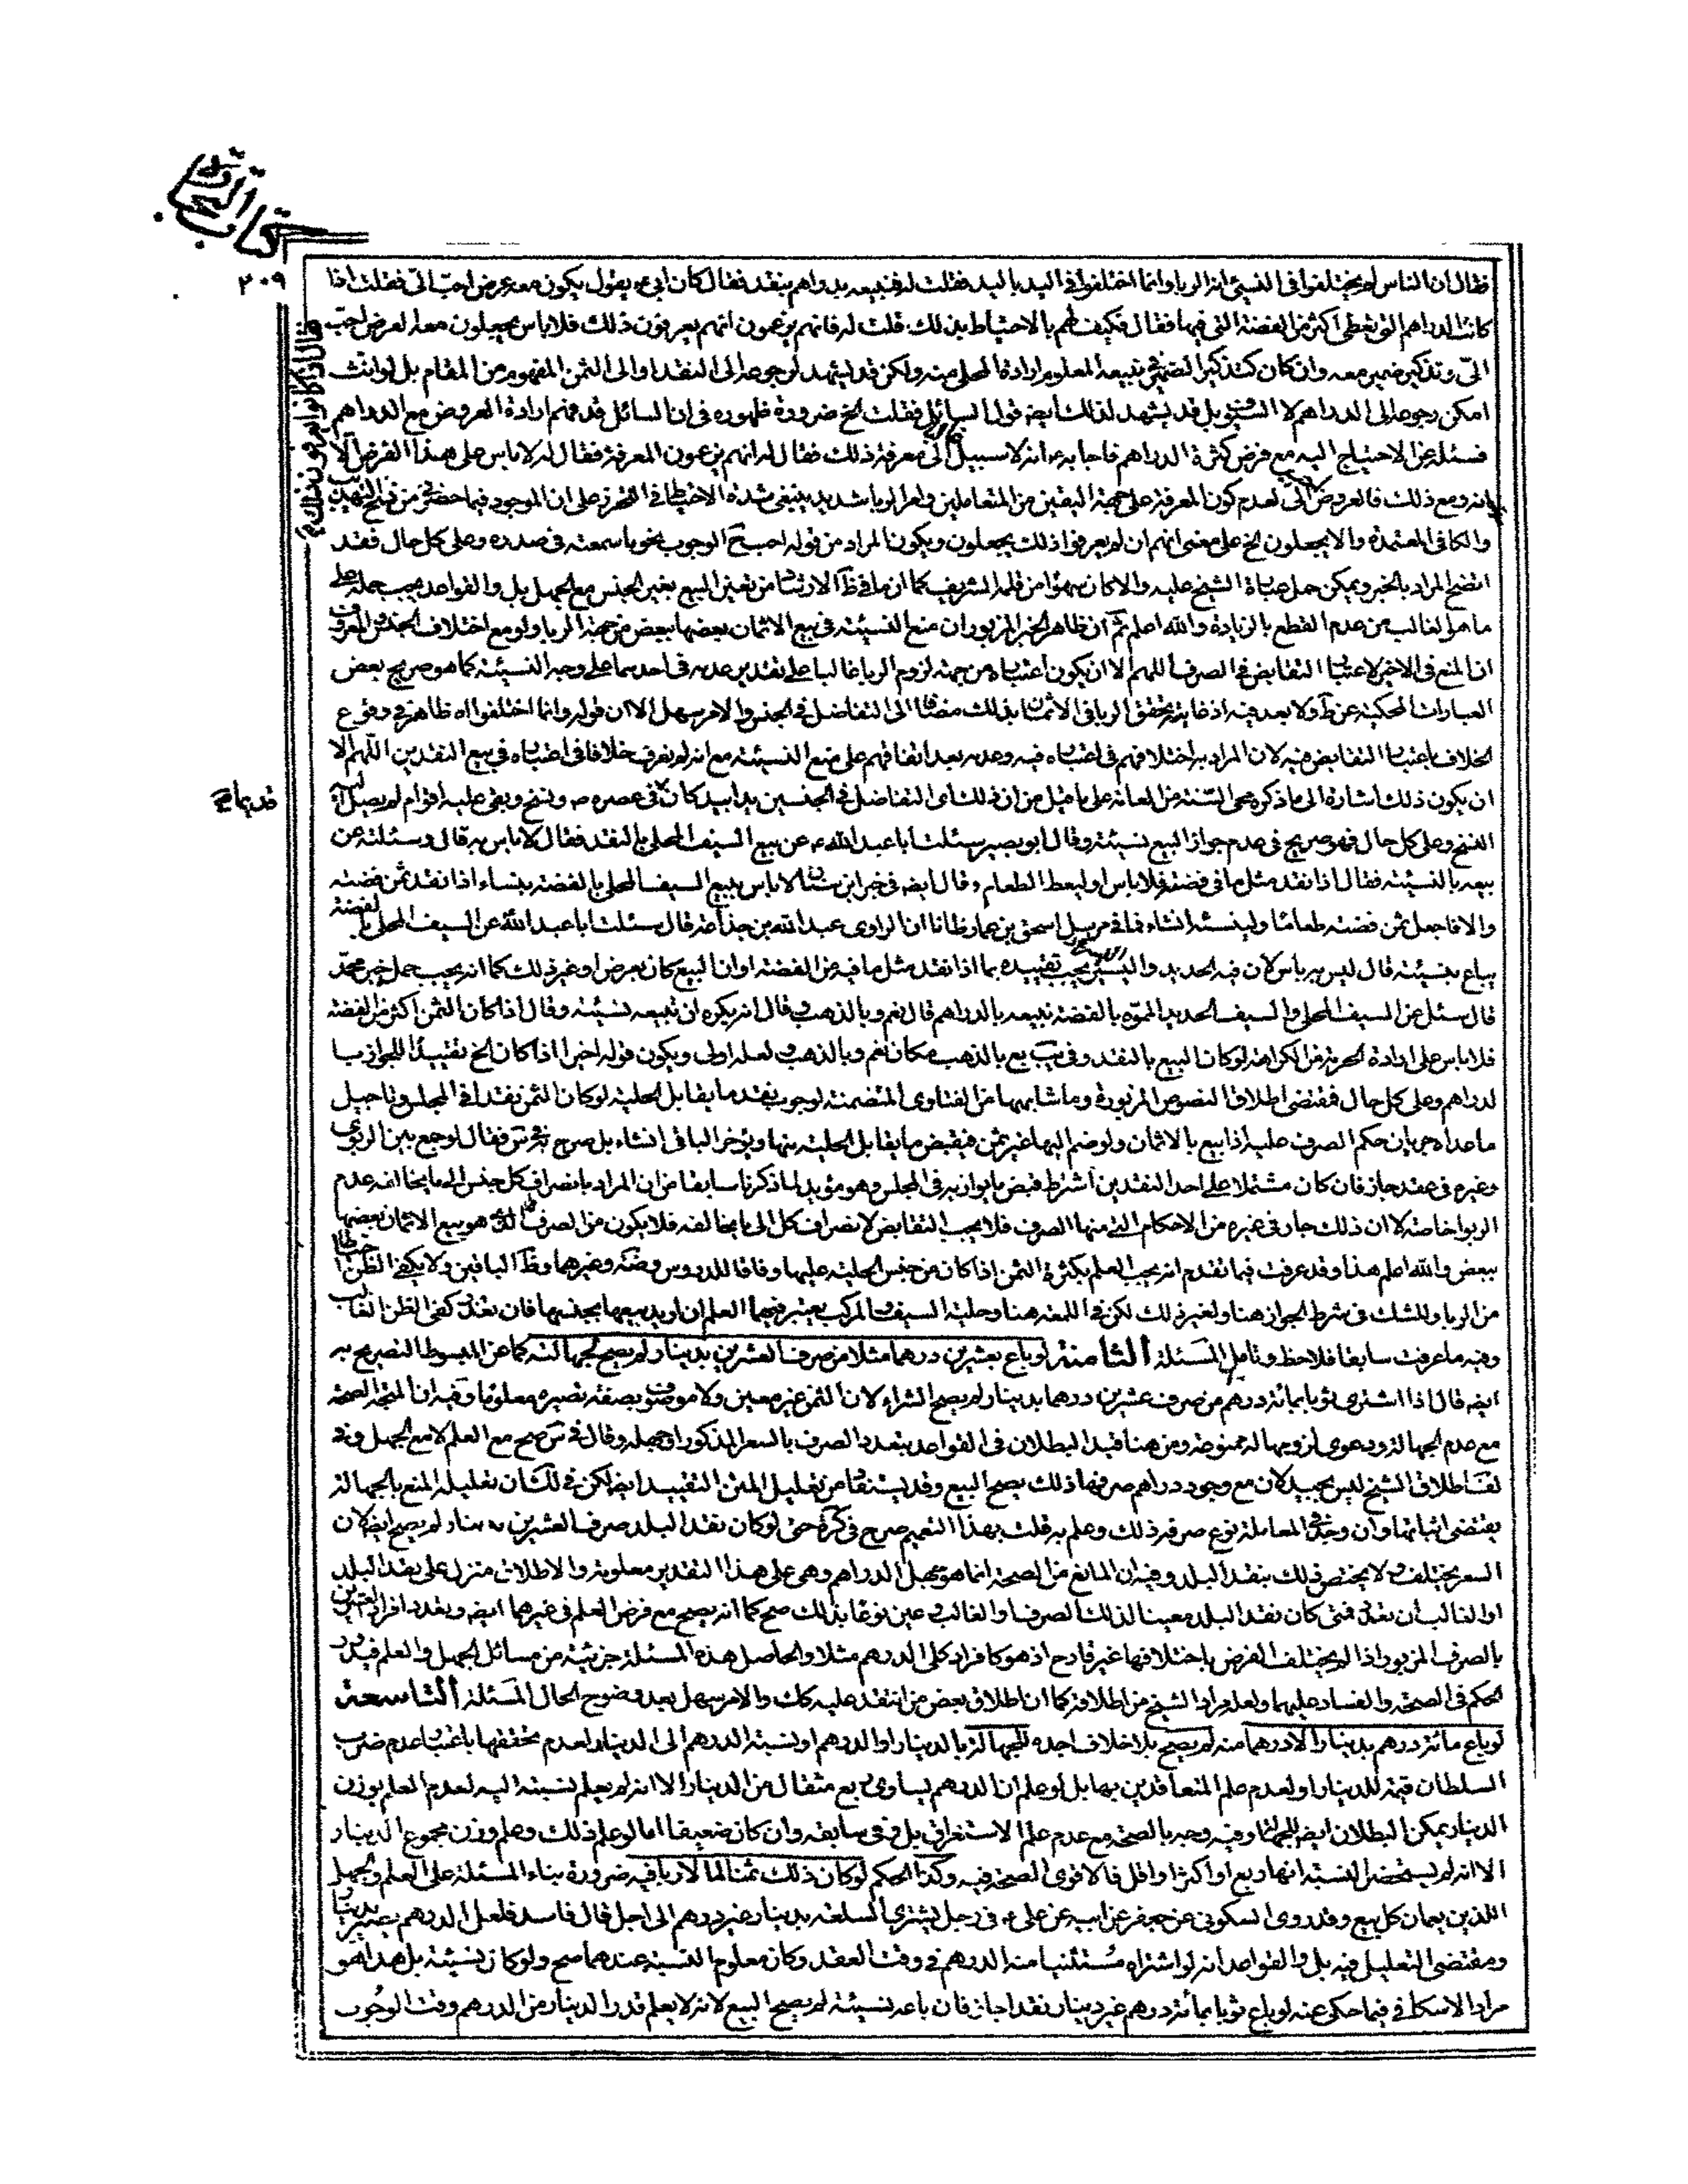 كتاب التجارة
٢٠٩
فقال ان الناس لم يختلفوا في النسئ انه الربا وانما اختلفوا في اليد باليد فقلت له فنبيعه بدراهم بنقد فقال كان ابي ع يقول يكون معه عرض احب الي فقلت اذا
كانت الدراهم التي تعطى اكثر من الفضة التي فيها فقال فكيف لهم بالاحتياط بذلك قلت له فانهم يزعمون انهم يعرفون ذلك فلا باس يجعلون معه العرض احب
فقال ان كانوا يعرفون ذلك
الي وتذكير ضمير معه وان كان كتذكير الضمير في نبيعه المعلوم ارادة المحلى منه ولكن قد يشهد لرجوعه الى النقد او الى الثمن المفهوم من المقام بل لو انث
امكن رجوعه الى الدراهم لا السيوف بل قد يشهد لذلك ايضه قول السائل فقلت الخ ضرورة ظهوره في ان السائل قد فهم ارادة العروض مع الدراهم
فسئله عن الاحتياج اليه مع فرض كثرة الدراهم فاجابه ع انه لا سبيل الى معرفة ذلك فقال له انهم يزعمون المعرفة فقال له لا باس على هذا الفرض الا
انه ومع ذلك فالعروض الي لعدم كون المعرفة على جهة اليقين من المتعاملين وامر الربا شديد ينبغي شدة الاحتياط في التحرز على ان الموجود فيما حضرني من نسخ التهذيب
والكافي المعتمدة والا يجعلون الخ على معنى انهم ان لم يعرفوا ذلك يجعلون ويكون المراد من قوله احب الوجوب نحو ما سمعته في صدره وعلى كل حال فقد
اتضح المراد بالخبر ويمكن حمل عبارة الشيخ عليه والا كان سهوا من قلمه الشريف كما ان ما في ظ الارشاد من تعين البيع بغير الجنس مع الجهل بل والقواعد يجب حمله على
ما هو الغالب من عدم القطع بالزيادة والله اعلم ثم ان ظاهر الخبر المزبور ان منع النسيئة في بيع الاثمان بعضها ببعض من جهة الربا ولو مع اختلاف الجنس والمعروف
ان المنع في الاخير لاعتبار التقابض في الصرف اللهم الا ان يكون اعتباره من جهة لزوم الربا غالبا على تقدير عدمه في احدهما على وجه النسيئة كما هو صريح بعض
العبارات المحكية عن ط ولا بعد فيه اذ غايته تحقق الربا في الاثمان بذلك مضافا الى التفاضل في الجنس والامر سهل الا ان قوله وانما اختلفوا اه ظاهر في وقوع
الخلاف باعتبار التقابض فيه لان المراد به اختلافهم في اعتباره فيه وعدمه بعد اتفاقهم على منع النسيئة مع انه لم يعرف خلافا في اعتباره في بيع النقدين اللهم الا
ان يكون ذلك اشارة الى ما ذكره محي السنة من العامة على ما قيل من ان ذلك اي التفاضل في الجنسين يدا بيد كان في عصره ص ونسخ وبقي عليه اقوام لم يصل اليهم
النسخ وعلى كل حال فهو صريح في عدم جواز البيع نسيئة وقال ابو بصير سئلت ابا عبد الله ع عن بيع السيف المحلى بالنقد فقال لا باس به قال وسئلته عن
بيعه بالنسيئة فقال اذا نقد مثل ما في فضته فلا باس او ليعط الطعام وقال ايضه في خبر ابن سنان لا باس ببيع السيف المحلى بالفضة بنساء اذا نقد ثمن فضته
والا فاجعل ثمن فضته طعاما ولينسئه ان شاء فما في مرسل اسحق بن عمار ظانا ان الراوي عبد الله بن جذاعة قال سئلت ابا عبد الله عن السيف المحلى بالفضة
يباع بنسيئة قال ليس به باس لان فيه الحديد والسير يجب تقييده بما اذا نقد مثل ما فيه من الفضة او ان البيع كان بعرض او غير ذلك كما انه يجب حمل خبر محمد
قال سئل عن السيف المحلى والسيف الحديد المموه بالفضة نبيعه بالدراهم قال نعم وبالذهب وقال انه يكره ان تبيعه نسيئة وقال اذا كان الثمن اكثر من الفضة
فلا باس على ارادة الحرمة من الكراهة لو كان البيع بالنقد وفي يب بع بالذهب مكان نعم وبالذهب ولعله اولى ويكون قوله اخيرا اذا كان الخ تقييدا للجواز با
لدراهم وعلى كل حال فمقتضى اطلاق النصوص المزبورة وما شابهها من الفتاوى المتضمنة لوجوب نقد ما يقابل الحلية لو كان الثمن نقدا في المجلس وتاجيل
ما عداه جريان حكم الصرف عليه اذا بيع بالاثمان ولو ضم اليها غير ثمن فيقبض ما يقابل الحلية منها ويؤخر الباقي ان شاء بل صرح في س فقال لو جمع بين الربوي
وغيره في عقد جاز فان كان مشتملا على احد النقدين اشترط قبض ما يوازيه في المجلس وهو مؤيد لما ذكرنا سابقا من ان المراد بانصراف كل جنس الى ما يخالفه عدم
الربوا خاصة لا ان ذلك جار في غيره من الاحكام التي منها الصرف فلا يجب التقابض لانصراف كل الى ما يخالفه فلا يكون من الصرف الذي هو بيع الاثمان بعضها
ببعض والله اعلم هذا وقد عرفت فيما تقدم انه يجب العلم بكثرة الثمن اذا كان من جنس الحلية عليها وفاقا للدروس وضه وغيرهما وظ الباقين ولا يكفي الظن احتياطا
من الربا وللشك في شرط الجواز هنا ولغير ذلك لكن في اللمعة هنا وحلية السيف والمركب يعتبر فيهما العلم ان اريد بيعها بجنسها فان تعذر كفى الظن الغالب
وفيه ما عرفت سابقا فلاحظ وتامل المسئلة الثامنة لو باع بعشرين درهما مثلا من صرف العشرين بدينار لم يصح لجهالته كما عن المبسوط التصريح به
ايضه قال اذا اشترى ثوبا بمائة درهم من صرف عشرين درهما بدينار لم يصح الشراء لان الثمن غير معين ولا موصوف بصفة يصير معلوما وفيه ان المتجه الصحة
مع عدم الجهالة ودعوى لزومها له ممنوعة ومن هنا قيد البطلان في القواعد بتعدد الصرف بالسعر المذكور او جهله وقال في س صح مع العلم لا مع الجهل وفي
لف اطلاق الشيخ ليس بجيد لان مع وجود دراهم صرفها ذلك يصح البيع وقد يستفاد من تعليل المتن التقييد ايضه لكن في لك ان تعليله المنع بالجهالة
يقتضي اثباتها وان وجد في المعاملة نوع صرفه ذلك وعلم به قلت بهذا التعميم صرح في كرة حتى لو كان نقد البلد صرف العشرين بدينار لم يصح ايضه لان
السعر يختلف ولا يختص ذلك بنقد البلد وفيه ان المانع من الصحة انما هو جهل الدراهم وهي على هذا التقدير معلومة والاطلاق منزل على نقد البلد
او الغالب ان تعدد فمتى كان نقد البلد معينا لذلك الصرف او الغالب وعين نوعا بذلك صح كما انه يصح مع فرض العلم في غيرهما ايضه وتعدد افراد العشرين
بالصرف المزبور اذا لم يختلف الغرض باختلافها غير قادح اذ هو كافراد كلي الدرهم مثلا والحاصل هذه المسئلة جزئية من مسائل الجهل والعلم فيدور
الحكم في الصحة والفساد عليهما ولعل مراد الشيخ من اطلاقه كما ان اطلاق بعض من انتقد عليه كك والامر سهل بعد وضوح الحال المسئلة التاسعة
لو باع مائة درهم بدينار الا درهما منه لم يصح بلا خلاف اجده للجهالة بالدينار او الدرهم او نسبة الدرهم الى الدينار لعدم تحققها باعتبار عدم ضرب
السلطان قيمة للدينار او لعدم علم المتعاقدين بها بل لو علم ان الدرهم يساوي ربع مثقال من الدينار الا انه لم يعلم نسبته اليه لعدم العلم بوزن
الدينار يمكن البطلان ايضه للجهالة وفيه وجه بالصحة مع عدم علم الاستغراق بل وفي سابقه وان كان ضعيفا اما لو علم ذلك وعلم وزن مجموع الدينار
الا انه لم يستحضر النسبة انها ربع او اكثر او اقل فالاقوى الصحة فيه وكذا الحكم لو كان ذلك ثمنا لما لا ربا فيه ضرورة بناء المسئلة على العلم والجهل
اللذين يعمان كل بيع وقد روى السكوني عن جعفر عن ابيه عن علي ع في رجل يشتري السلعة بدينار غير درهم الى اجل قال فاسد فلعل الدرهم يصير بدينار
ومقتضى التعليل فيه بل والقواعد انه لو اشتراه مستثنيا منه الدرهم في وقت العقد وكان معلوم النسبة عندهما صح ولو كان نسيئة بل هذا هو
مراد الاسكافي فيما حكي عنه لو باع ثوبا بمائة درهم غير دينار نقدا جاز فان باعه نسيئة لم يصح البيع لانه لا يعلم قدر الدينار من الدرهم وقت الوجوب